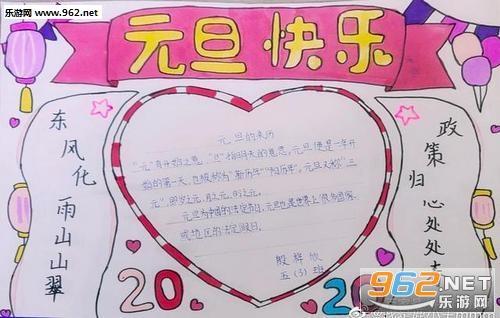 乐游网 www.962.net
元旦快乐
东风化雨山山翠
政策归心处处
元旦的来历
"元"有开始之意,"旦"指明天的意思,元旦便是一年开
始的第一天,也被称为"新历年""阳历年",元旦又称"三
元",即岁之元,月之元,时之元。
元旦为中国的法定节日,元旦也是世界上很多国家
或地区的法定假日。
殷梓欣
五(3)班
20 2
962.NET
乐游网